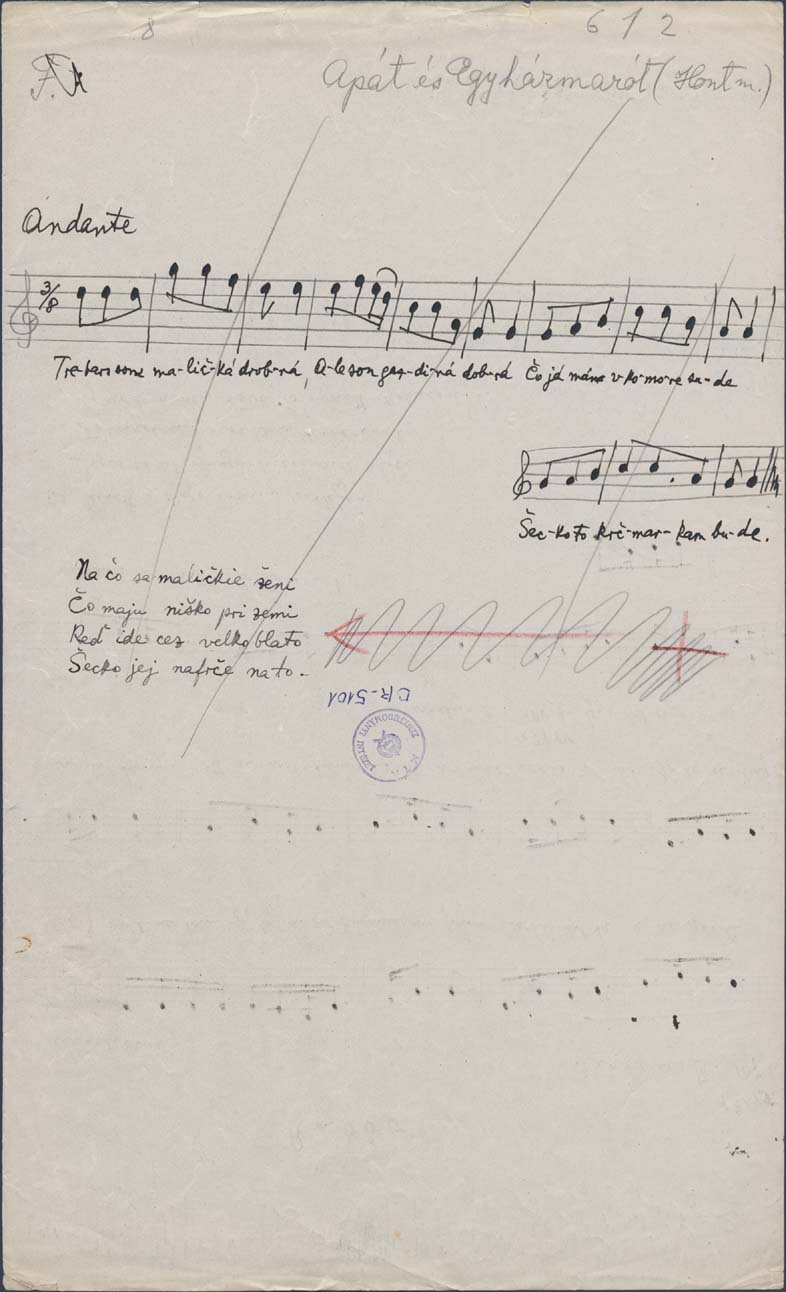 8
612
Apát és Egyházmarót (Hont m.)
Andante
3/8
Tre-bars som ma-lič-ká drob-ná, A-le som gaz-di-ná dob-rá Čo já mám v ko-mo-re sa-de
Šec-ko to krč-mar-kam bu-de.
Na čo sa maličkie ženi
Čo maju niško pri zemi
Keď ide cez velko blato
Šecko jej nafrče na to.
CR-5101